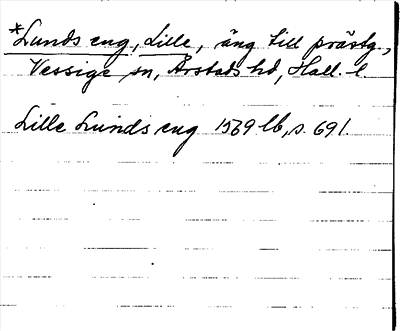 *Lunds eng, Lille, äng till prästg.,
Vessige sn, Årstads hd, Hall. l.
Lille Lunds eng 1569 lb, s. 691.